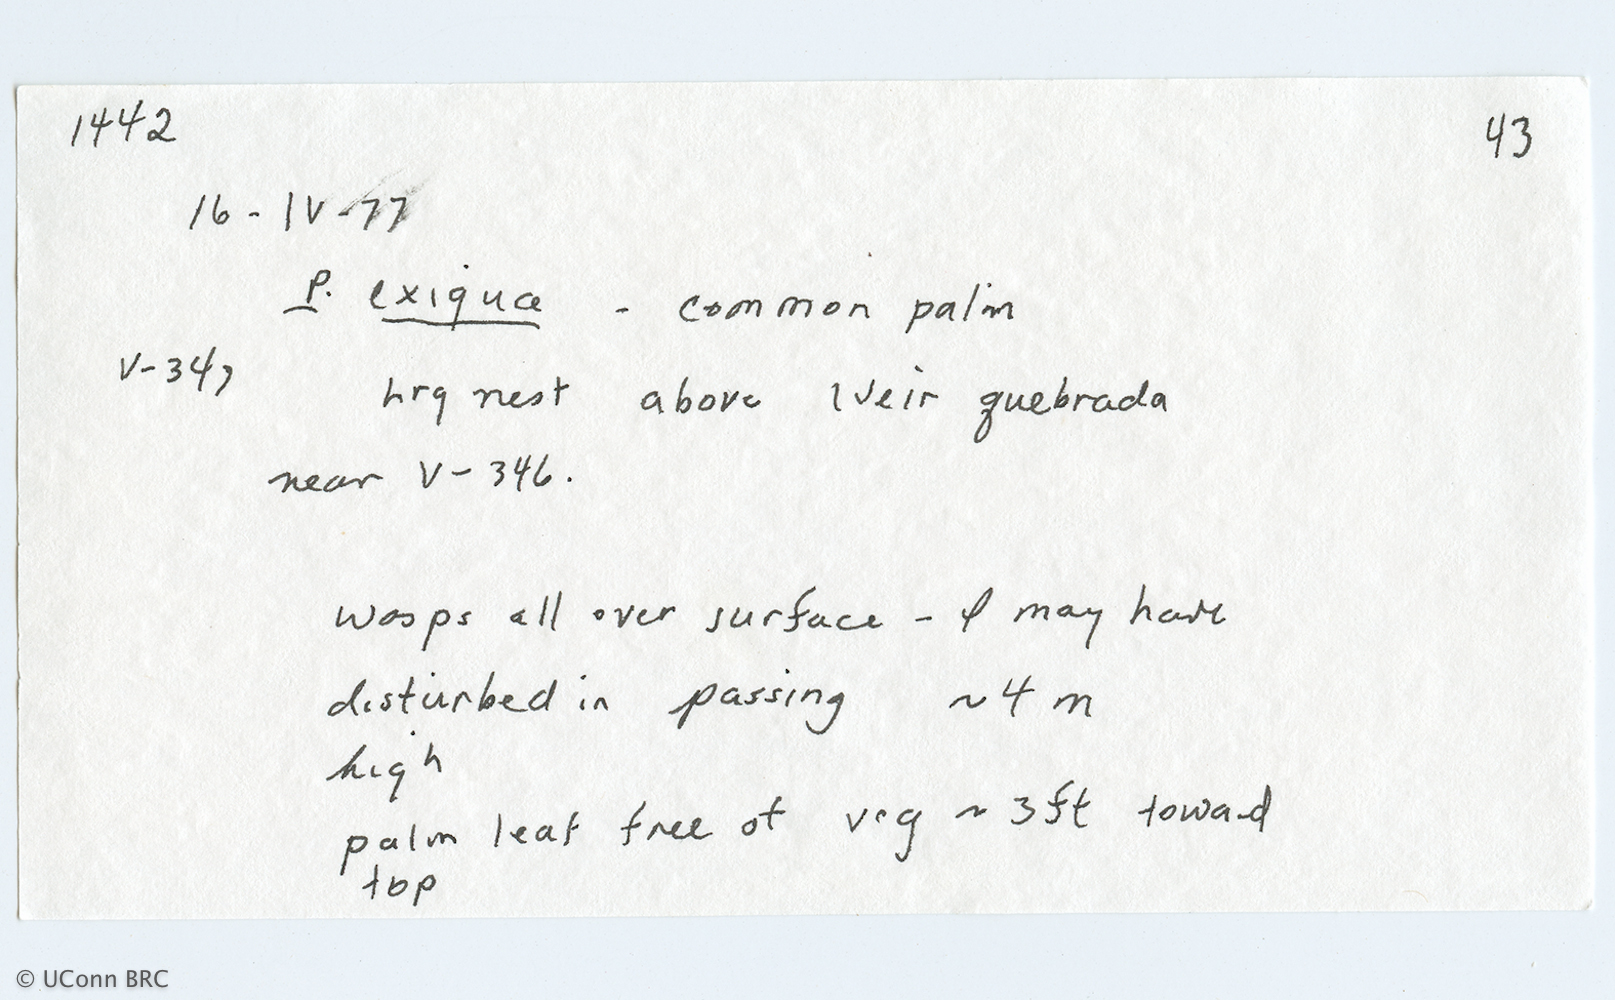 1442 43
16-IV-77
P. exiguae - common palm
V-347
hrg nest above Weir quebrada
near V-346.
wasps all over surface - I may have
disturbed in passing ~4 m
high
palm leaf free of veg ~ 3 ft toward
top
© UConn BRC